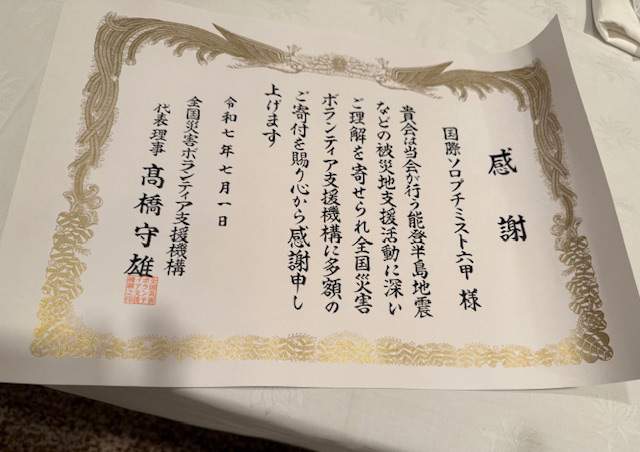 感謝
国際ソロプチミスト六甲 様
貴会は当会が行う能登半島地震
などの被災地支援活動に深い
ご理解を寄せられ全国災害
ボランティア支援機構に多額の
ご寄付を賜り心から感謝申し
上げます
令和七年七月一日
全国災害ボランティア支援機構
代表理事 髙橋守雄